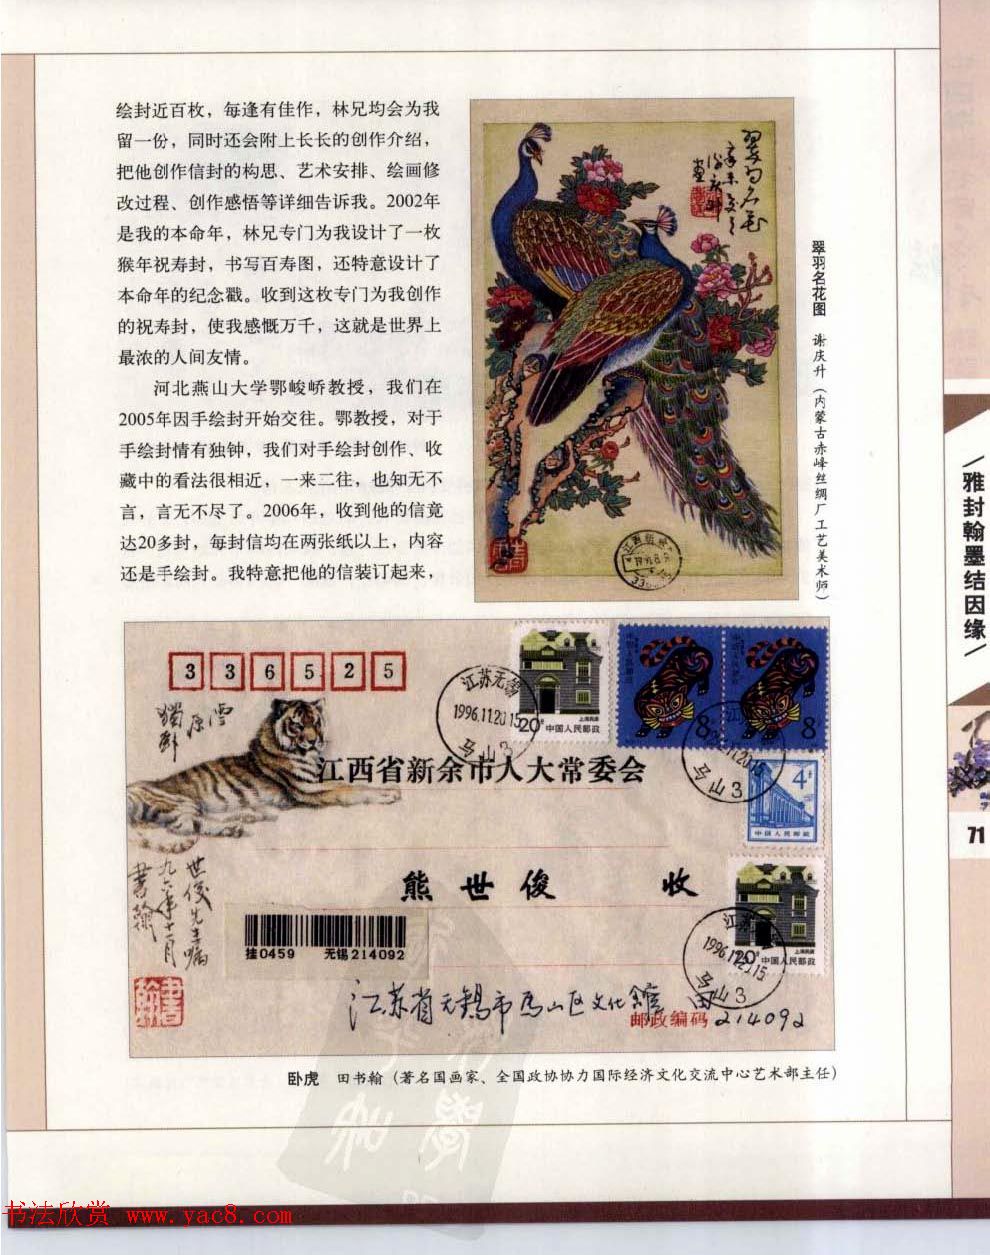 绘封近百枚，每逢有佳作，林兄均会为我
留一份，同时还会附上长长的创作介绍，
把他创作信封的构思、艺术安排、绘画修
改过程、创作感悟等详细告诉我。2002年
是我的本命年，林兄专门为我设计了一枚
猴年祝寿封，书写百寿图，还特意设计了
本命年的纪念戳。收到这枚专门为我创作
的祝寿封，使我感慨万千，这就是世界上
最浓的人间友情。
河北燕山大学鄂峻峤教授，我们在
2005年因手绘封开始交往。鄂教授，对于
手绘封情有独钟，我们对手绘封创作、收
藏中的看法很相近，一来二往，也知无不
言，言无不尽了。2006年，收到他的信竟
达20多封，每封信均在两张纸以上，内容
还是手绘封。我特意把他的信装订起来，
翠羽名花
翠羽名花图 谢庆升（内蒙古赤峰丝绸厂工艺美术师）
雅封翰墨结因缘
71
336525
雪原
独卧
江苏无锡
1996.11.20.15
马山3
20分 中国人民邮政
上海民居
8
8
4分
中国人民邮政
江西省新余市人大常委会
熊世俊 收
世俊先生嘱
九六年十一月
书翰
挂0459 无锡214092
江苏无锡
1996.11.20.15
马山3
20分 中国人民邮政
上海民居
江苏省无锡市马山区文化馆 田
邮政编码 214092
卧虎 田书翰（著名国画家、全国政协协力国际经济文化交流中心艺术部主任）
书法欣赏 www.yac8.com